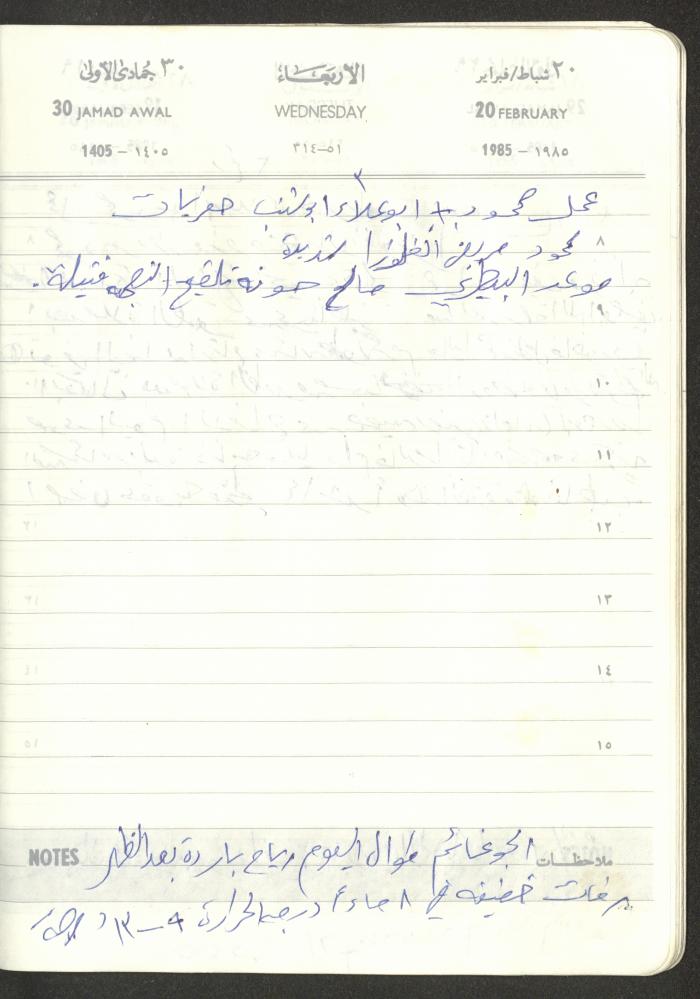 ٢٠ شباط/فبراير الأربعاء ٣٠ جمادى الأولى
20 FEBRUARY WEDNESDAY 30 JAMAD AWAL
1985 – ١٩٨٥ ٥١–٣١٤ 1405 – ١٤٠٥
٣
عمل محمود + ابو علاء ابو شنب حفريات
٨ محمود مريض انفلونزا شديدة
موعد البيطري صالح حمونة تلقيح النعجة فتيلة.
٩
١٠
١١
١٢
١٣
١٤
١٥
ملاحظات الجو غائم طوال اليوم رياح باردة بعد الظهر NOTES
خفيفة في ٨ مساءً درجة الحرارة ٩ – ١٣